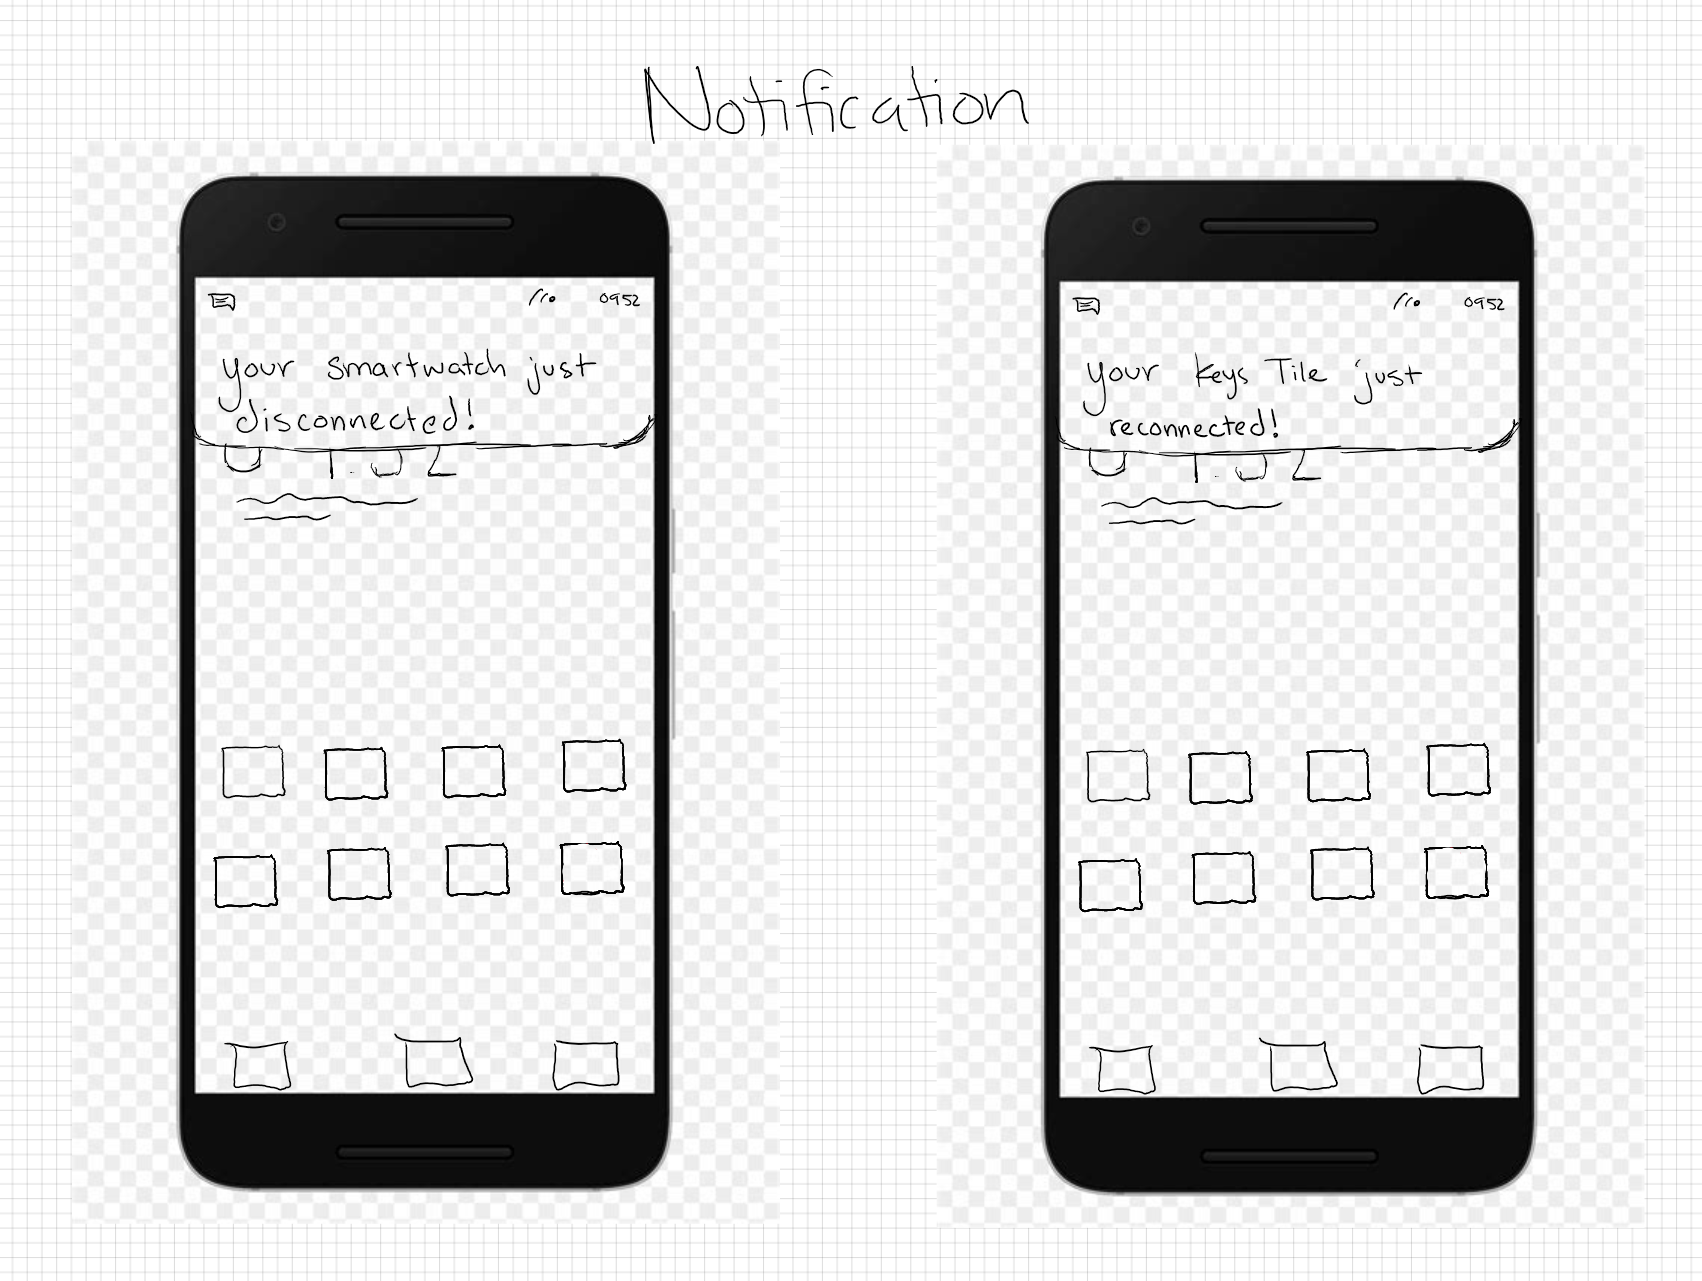 Notification
0952
your smartwatch just
disconnected!
0952
your keys Tile just
reconnected!